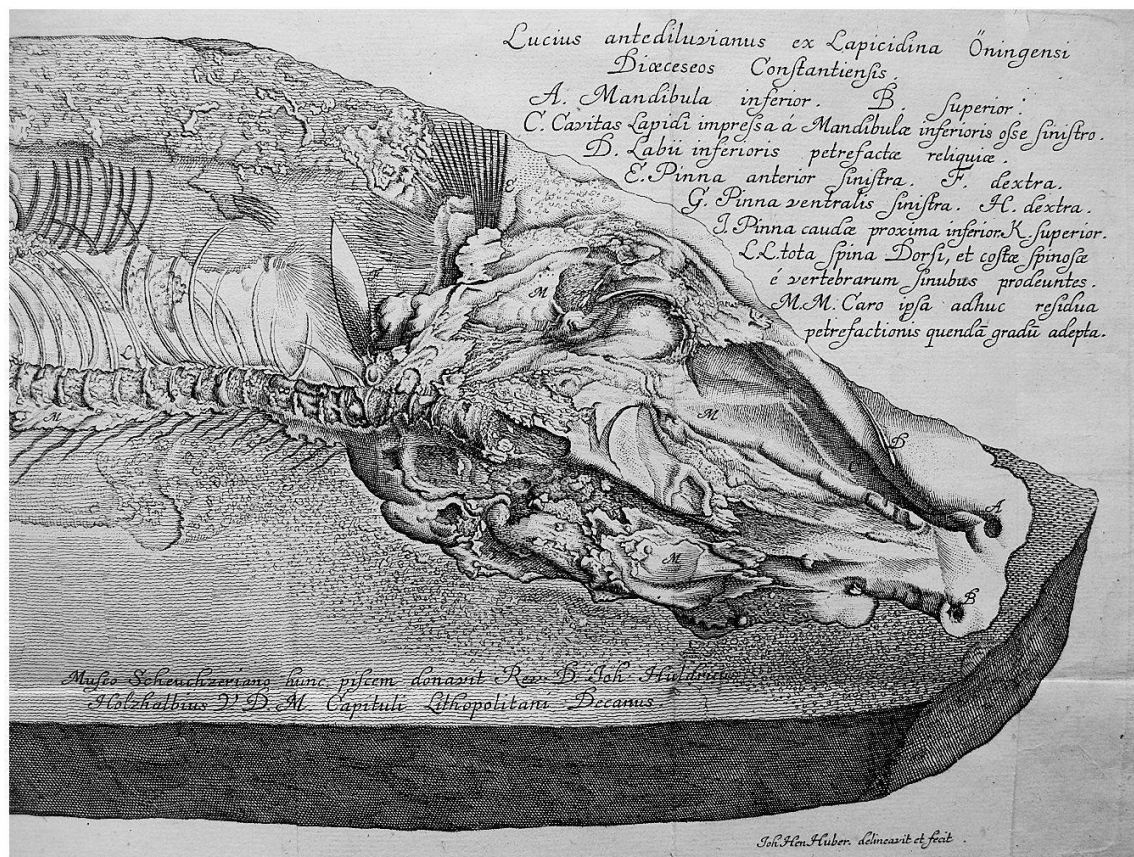 Lucius antediluvianus ex Lapicidina Öningensi
Diœceseos Constantiensis.
A. Mandibula inferior. B. superior.
C. Cavitas Lapidi impressa á Mandibulæ inferioris osse sinistro.
D. Labii inferioris petrefactæ reliquiæ.
E. Pinna anterior sinistra. F. dextra.
G. Pinna ventralis sinistra. H. dextra.
I. Pinna caudæ proxima inferior. K. superior.
L.L. tota spina Dorsi, et costæ spinosæ
é vertebrarum sinubus prodeuntes.
M.M. Caro ipsa adhuc residua
petrefactionis quendã gradũ adepta.
E
L
M
L
M
M
B
A
M
B
Museo Scheuchzeriano hunc piscem donavit Rev. D. Joh. Huldricus
Holzhalbius V. D. M. Capituli Lithopolitani Decanus.
Joh. Hen Huber. delineavit et fecit.